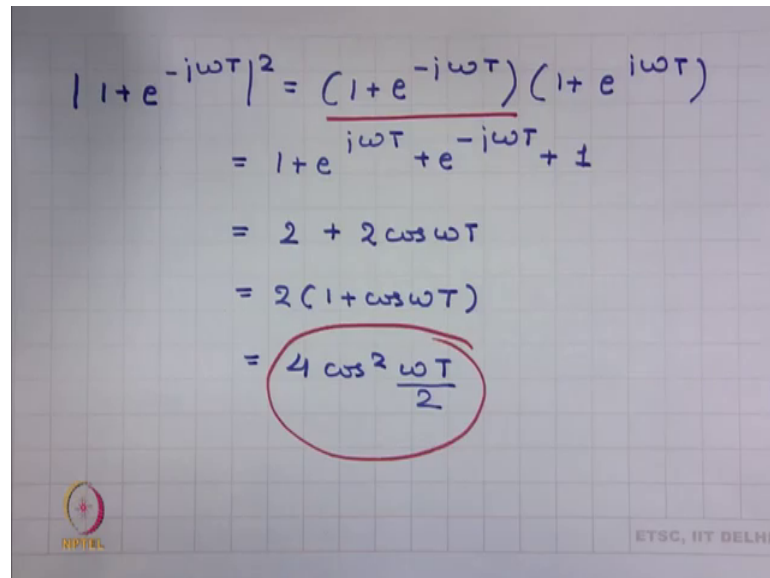 |1+e^{-jωT}|^2 = (1+e^{-jωT})(1+e^{jωT})
= 1+e^{jωT}+e^{-jωT}+1
= 2 + 2 cos ωT
= 2(1+cos ωT)
= 4 cos^2 ωT/2
NPTEL
ETSC, IIT DELHI